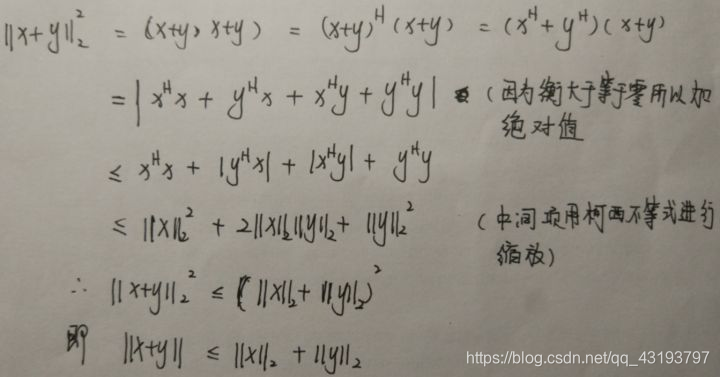 ||x+y||₂² = (x+y, x+y) = (x+y)ᴴ(x+y) = (xᴴ+yᴴ)(x+y)
= | xᴴx + yᴴx + xᴴy + yᴴy | (因为衡大于等于零所以加
绝对值
≤ xᴴx + |yᴴx| + |xᴴy| + yᴴy
≤ ||x||₂² + 2||x||₂||y||₂ + ||y||₂² (中间项用柯西不等式进行
缩放)
∴ ||x+y||₂² ≤ (||x||₂+||y||₂)²
即 ||x+y|| ≤ ||x||₂ + ||y||₂
https://blog.csdn.net/qq_43193797